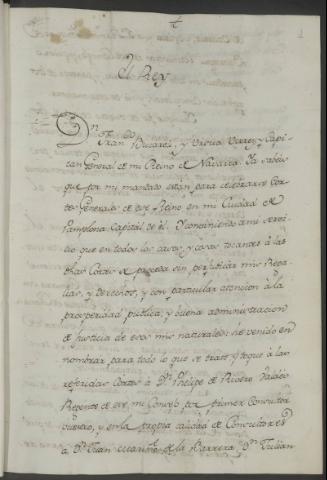 El Rey
Dn. Franco. Bucareli, y Ursua Virrey y Capi-
tan General de mi Reino de Navarra. Ya sabeis
que por mi mandado están para celebrarse Cor-
tes Generales de ese Reino en mi Ciudad de
Pamplona Capital de él. Y conviniendo a mi servi-
cio que en todos los casos, y cosas tocantes à las
dhas Cortes se proceda sin perjudicar mis Rega-
lias, y derechos, y con particular atencion à la
prosperidad publica, y buena administracion
de Justicia de esos mis naturales: he venido en
nombrar para todo lo que se trate y toque à las
referidas Cortes à Dn. Phelipe de Rivero Valdés
Regente de ese mi Consejo por primer Consultor
y en la propia calidad de Consultores
a Dn. Juan de la Barrera, Dn. Julian